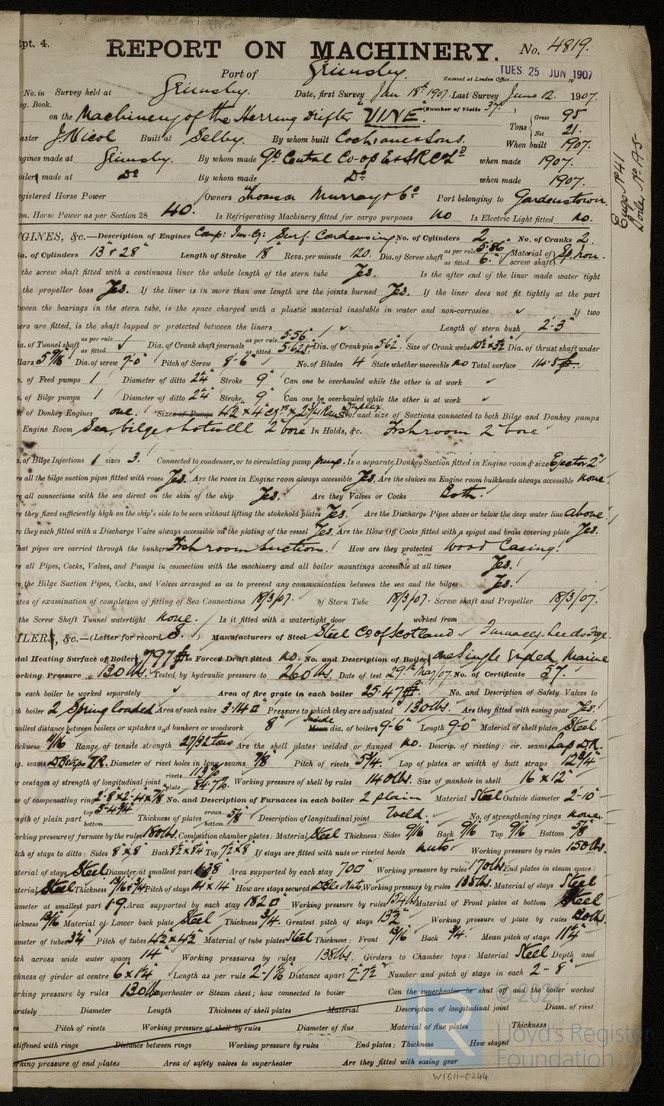 pt. 4. REPORT ON MACHINERY. No. 4819.
Port of Grimsby. Received at London Office TUES. 25 JUN 1907
No. in Survey held at Grimsby. Date, first Survey Jan 18th 1907 Last Survey June 12. 1907.
g. Book. (Number of Visits 37.)
on the Machinery of the Herring Drifter "VINE" Tons Gross 95 Net 21.
aster J. Nicol Built at Selby. By whom built Cochrane & Sons. When built 1907.
ngines made at Grimsby By whom made when made 1907.
oilers made at Do By whom made Do when made 1907.
egistered Horse Power Owners Thomas Murray & Co Port belonging to Gardenstown.
m. Horse Power as per Section 28 40. Is Refrigerating Machinery fitted for cargo purposes No Is Electric Light fitted No.
NGINES, &c.—Description of Engines Comp: Surf. Condensing No. of Cylinders 2 No. of Cranks 2.
ia. of Cylinders 13" & 28" Length of Stroke 18" Revs. per minute 120. Dia. of Screw shaft as per rule 5.86" as fitted 6" Material of screw shaft
the screw shaft fitted with a continuous liner the whole length of the stern tube Yes. Is the after end of the liner made water tight
the propeller boss Yes. If the liner is in more than one length are the joints burned Yes. If the liner does not fit tightly at the part
tween the bearings in the stern tube, is the space charged with a plastic material insoluble in water and non-corrosive If two
ers are fitted, is the shaft lapped or protected between the liners Length of stern bush 2'-3"
ia. of Tunnel shaft as per rule as fitted Dia. of Crank shaft journals as per rule 5.56" as fitted Dia. of Crank pin 5.62 Size of Crank webs Dia. of thrust shaft under
llars Dia. of screw 7-0" Pitch of Screw 8'-6" No. of Blades 4 State whether moveable No Total surface
o. of Feed pumps 1 Diameter of ditto 2¼" Stroke 9" Can one be overhauled while the other is at work
o. of Bilge pumps 1 Diameter of ditto 2¼" Stroke 9" Can one be overhauled while the other is at work
of Donkey Engines one. Sizes of Pumps No. and size of Suctions connected to both Bilge and Donkey pumps
Engine Room Sea, bilge & hotwell 2" bore In Holds, &c. Fishroom 2" bore
o. of Bilge Injections 1 sizes 3. Connected to condenser, or to circulating pump pump. Is a separate Donkey Suction fitted in Engine room & size Ejector 2"
re all the bilge suction pipes fitted with roses Yes. Are the roses in Engine room always accessible Yes. Are the sluices on Engine room bulkheads always accessible none.
re all connections with the sea direct on the skin of the ship Yes. Are they Valves or Cocks Both.
re they fixed sufficiently high on the ship's side to be seen without lifting the stokehold plates Yes. Are the Discharge Pipes above or below the deep water line above.
re they each fitted with a Discharge Valve always accessible on the plating of the vessel Yes. Are the Blow Off Cocks fitted with a spigot and brass covering plate Yes.
hat pipes are carried through the bunkers Fishroom Suction. How are they protected Wood Casing.
re all Pipes, Cocks, Valves, and Pumps in connection with the machinery and all boiler mountings accessible at all times Yes.
re the Bilge Suction Pipes, Cocks, and Valves arranged so as to prevent any communication between the sea and the bilges Yes.
tes of examination of completion of fitting of Sea Connections 18/3/07. of Stern Tube 18/3/07. Screw shaft and Propeller 18/3/07.
the Screw Shaft Tunnel watertight none. Is it fitted with a watertight door worked from
ILERS, &c.—(Letter for record S.) Manufacturers of Steel Steel Co of Scotland. Furnaces, Leeds Forge.
otal Heating Surface of Boilers 797 Is Forced Draft fitted No. No. and Description of Boilers one Single Ended, Marine
orking Pressure 130 lbs. Tested by hydraulic pressure to 260 lbs. Date of test 29th May/07. No. of Certificate 57.
n each boiler be worked separately Area of fire grate in each boiler 25.47 No. and Description of Safety Valves to
ch boiler 2 Spring loaded Area of each valve 3.14 Pressure to which they are adjusted 130 lbs. Are they fitted with easing gear Yes.
allest distance between boilers or uptakes and bunkers or woodwork 8" Inside dia. of boilers 9'-6" Length 9'-0" Material of shell plates Steel
ickness 9/16 Range of tensile strength Are the shell plates welded or flanged No. Descrip. of riveting: cir. seams Lap DR.
ng. seams Diameter of rivet holes in long. seams 7/8" Pitch of rivets 5¼. Lap of plates or width of butt straps
er centages of strength of longitudinal joint rivets plate 84.72 Working pressure of shell by rules 140 lbs. Size of manhole in shell 16" x 12"
e of compensating ring No. and Description of Furnaces in each boiler 2 plain Material Steel Outside diameter 2'-10"
ngth of plain part top bottom Thickness of plates crown bottom Description of longitudinal joint Weld. No. of strengthening rings none.
orking pressure of furnace by the rules Combustion chamber plates: Material Steel Thickness: Sides 9/16 Back 9/16 Top 9/16 Bottom
tch of stays to ditto: Sides 8" x 8" Back Top If stays are fitted with nuts or riveted heads nuts Working pressure by rules 150 lbs.
aterial of stays Steel Diameter at smallest part Area supported by each stay Working pressure by rules 170 lbs. End plates in steam space:
terial Steel Thickness Pitch of stays 14 x 14 How are stays secured Dble Nuts Working pressure by rules Material of stays Steel
ameter at smallest part Area supported by each stay Working pressure by rules Material of Front plates at bottom Steel
ickness 13/16 Material of Lower back plate Steel Thickness ¾. Greatest pitch of stays Working pressure of plate by rules
ameter of tubes Pitch of tubes Material of tube plates Steel Thickness: Front 13/16 Back ¾. Mean pitch of stays
tch across wide water spaces 14" Working pressures by rules Girders to Chamber tops: Material Steel Depth and
ickness of girder at centre Length as per rule Distance apart Number and pitch of stays in each 2 - 8"
orking pressure by rules Superheater or Steam chest; how connected to boiler Can the superheater be shut off and the boiler worked
arately Diameter Length Thickness of shell plates Material Description of longitudinal joint Diam. of rivet
Pitch of rivets Working pressure of shell by rules Diameter of flue Material of flue plates Thickness
stiffened with rings Distance between rings Working pressure by rules End plates: Thickness How stayed
rking pressure of end plates Area of safety valves to superheater Are they fitted with easing gear
Lloyd's Register
Foundation
W1611-0244